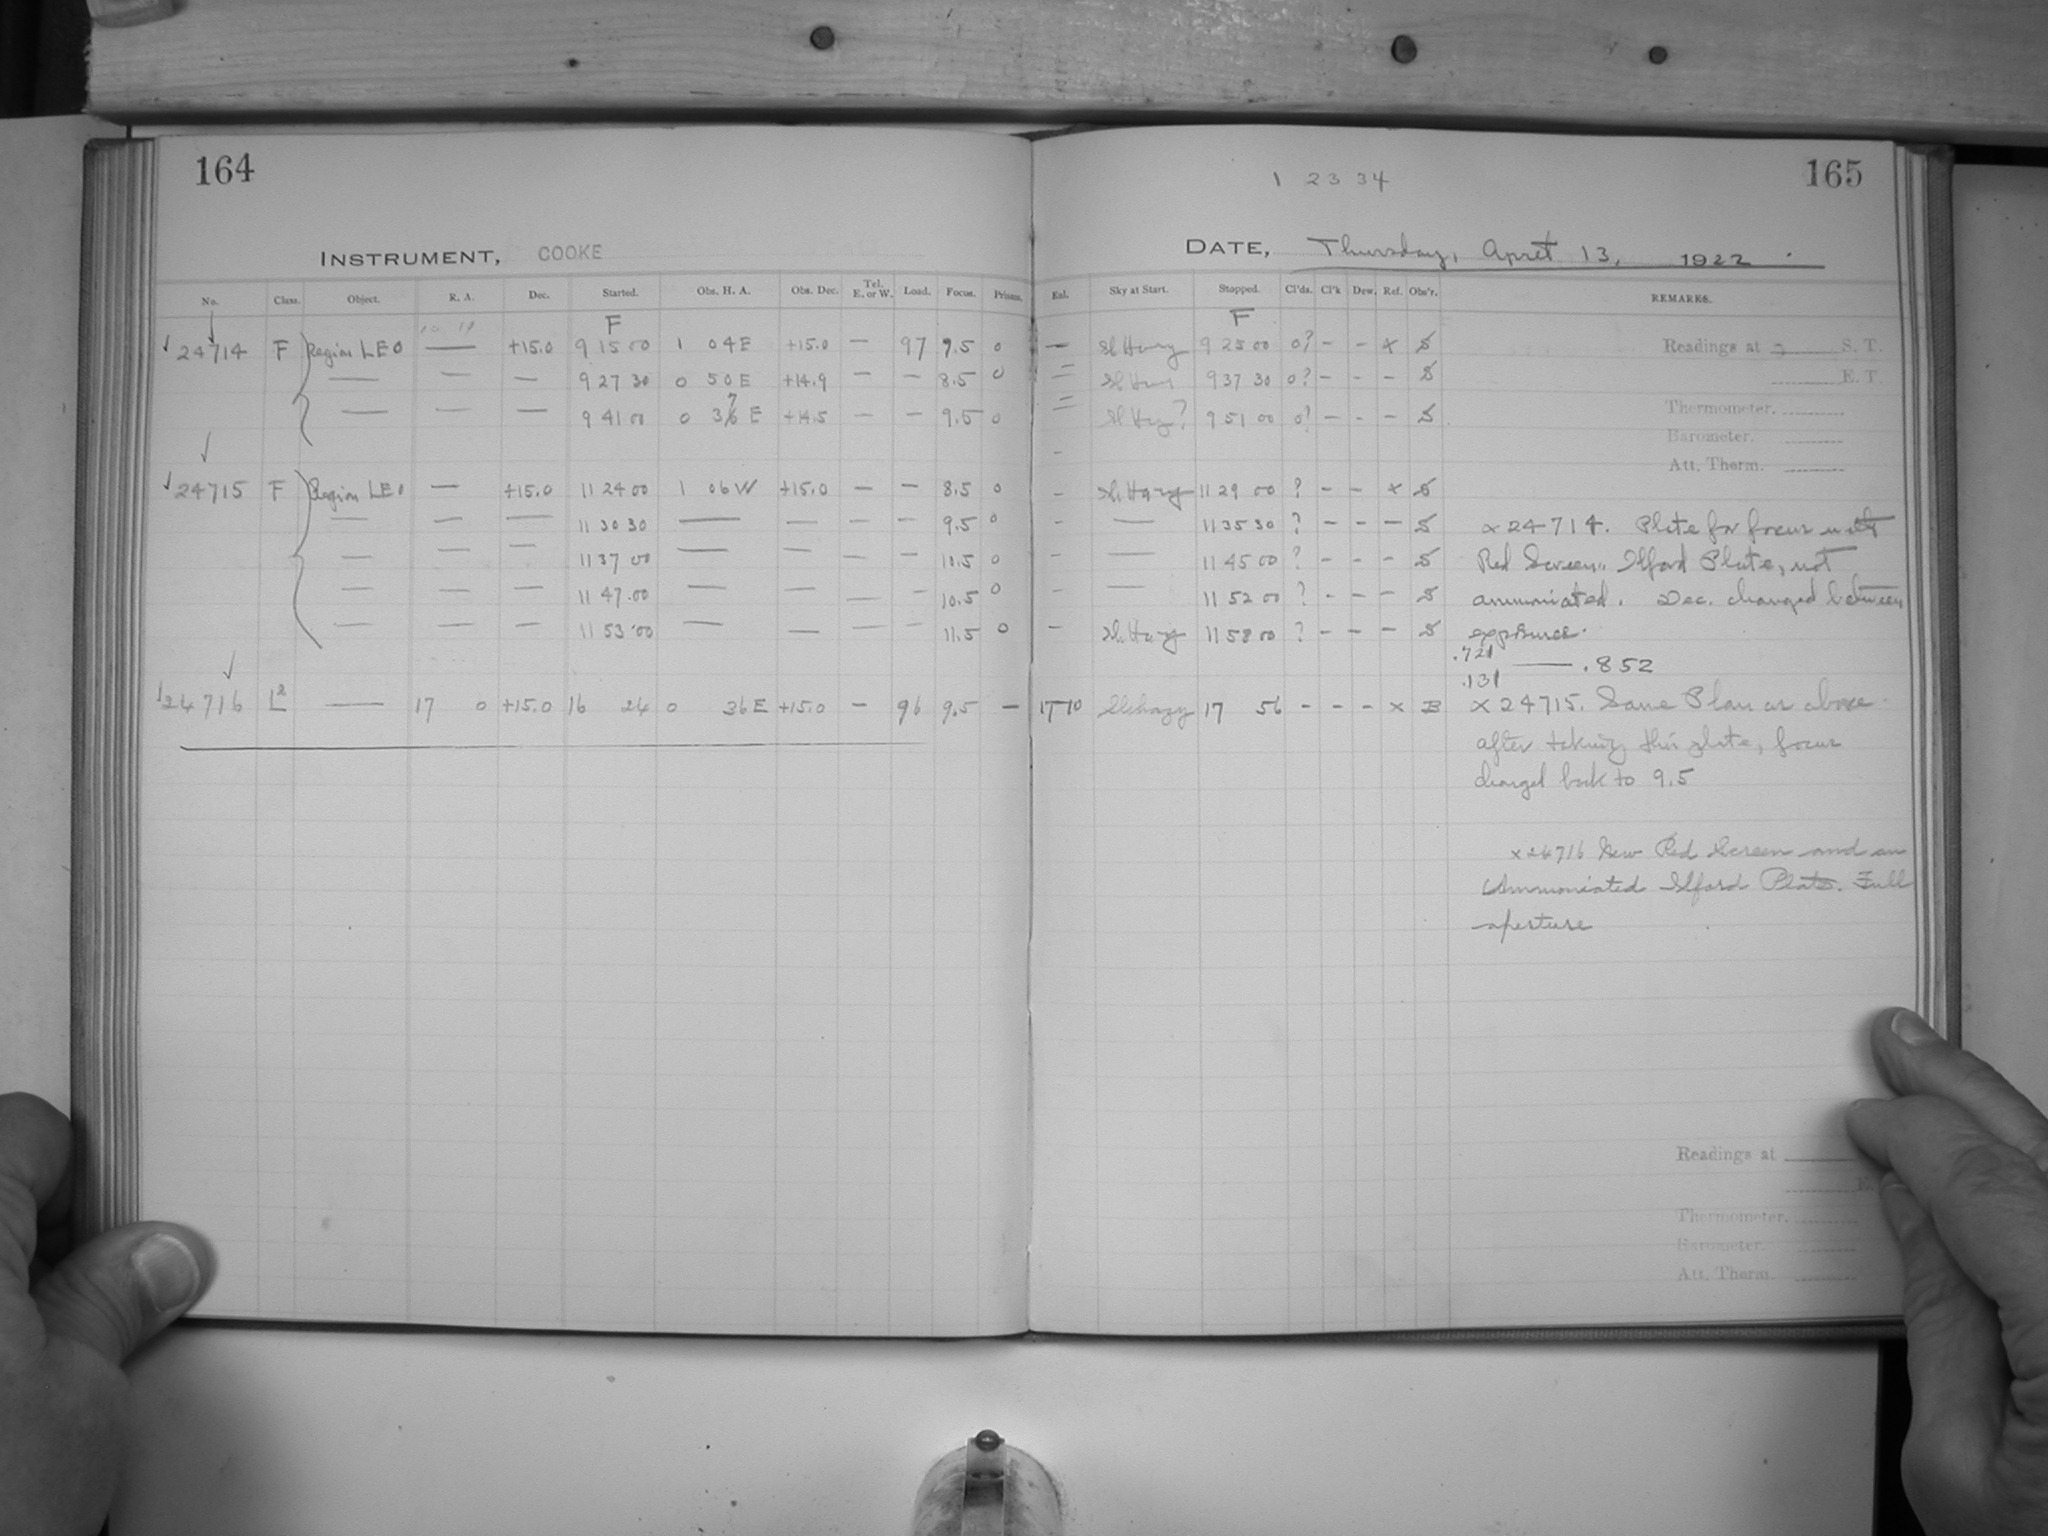 164
INSTRUMENT, COOKE
No. Class. Object. R. A. Dec. Started. Obs. H. A. Obs. Dec. Tel. E. or W. Load. Focus. Prisms.
F
24714 F Region LEO — +15.0 9 15 00 1 04 E +15.0 — 97 9.5 0
— — — 9 27 30 0 50 E +14.9 — — 8.5 0
— — — 9 41 00 0 36 7 E +14.5 — — 9.5 0
24715 F Region LEO — +15.0 11 24 00 1 06 W +15.0 — — 8.5 0
— — — 11 30 30 — — — — 9.5 0
— — — 11 37 00 — — — — 10.5 0
— — — 11 47 00 — — — — 10.5 0
— — — 11 53 00 — — — — 11.5 0
24716 L2 — 17 0 +15.0 16 24 0 36 E +15.0 — 96 9.5 —
1 23 34
165
DATE, Thursday, April 13, 1922
Exl. Sky at Start. Stopped. Cl'ds. Cl'k Dew. Ref. Obs'r. REMARKS.
F
— Sl Hazy 9 25 00 0? - - x S
— 9 37 30 0? - - - S
— 9 51 00 0? - - - S
- Sl. Hazy 11 29 00 ? - - x S
- — 11 35 30 ? - - - S
- — 11 45 00 ? - - - S
- — 11 52 00 ? - - - S
- Sl. Hazy 11 58 00 ? - - - S
17 10 Sl hazy 17 56 - - - x B
Readings at S. T.
E. T.
Thermometer.
Barometer.
Att. Therm.
x 24714. Plate for focus with
Red Screen. Ilford Plate, not
ammoniated. Dec. changed between
exposures.
.721
— .852
.131
x 24715. Same Plan as above
after taking this plate, focus
changed back to 9.5
x 24716 New Red Screen and an
Ammoniated Ilford Plate. Full
aperture
Readings at
E.
Thermometer.
Barometer.
Att. Therm.